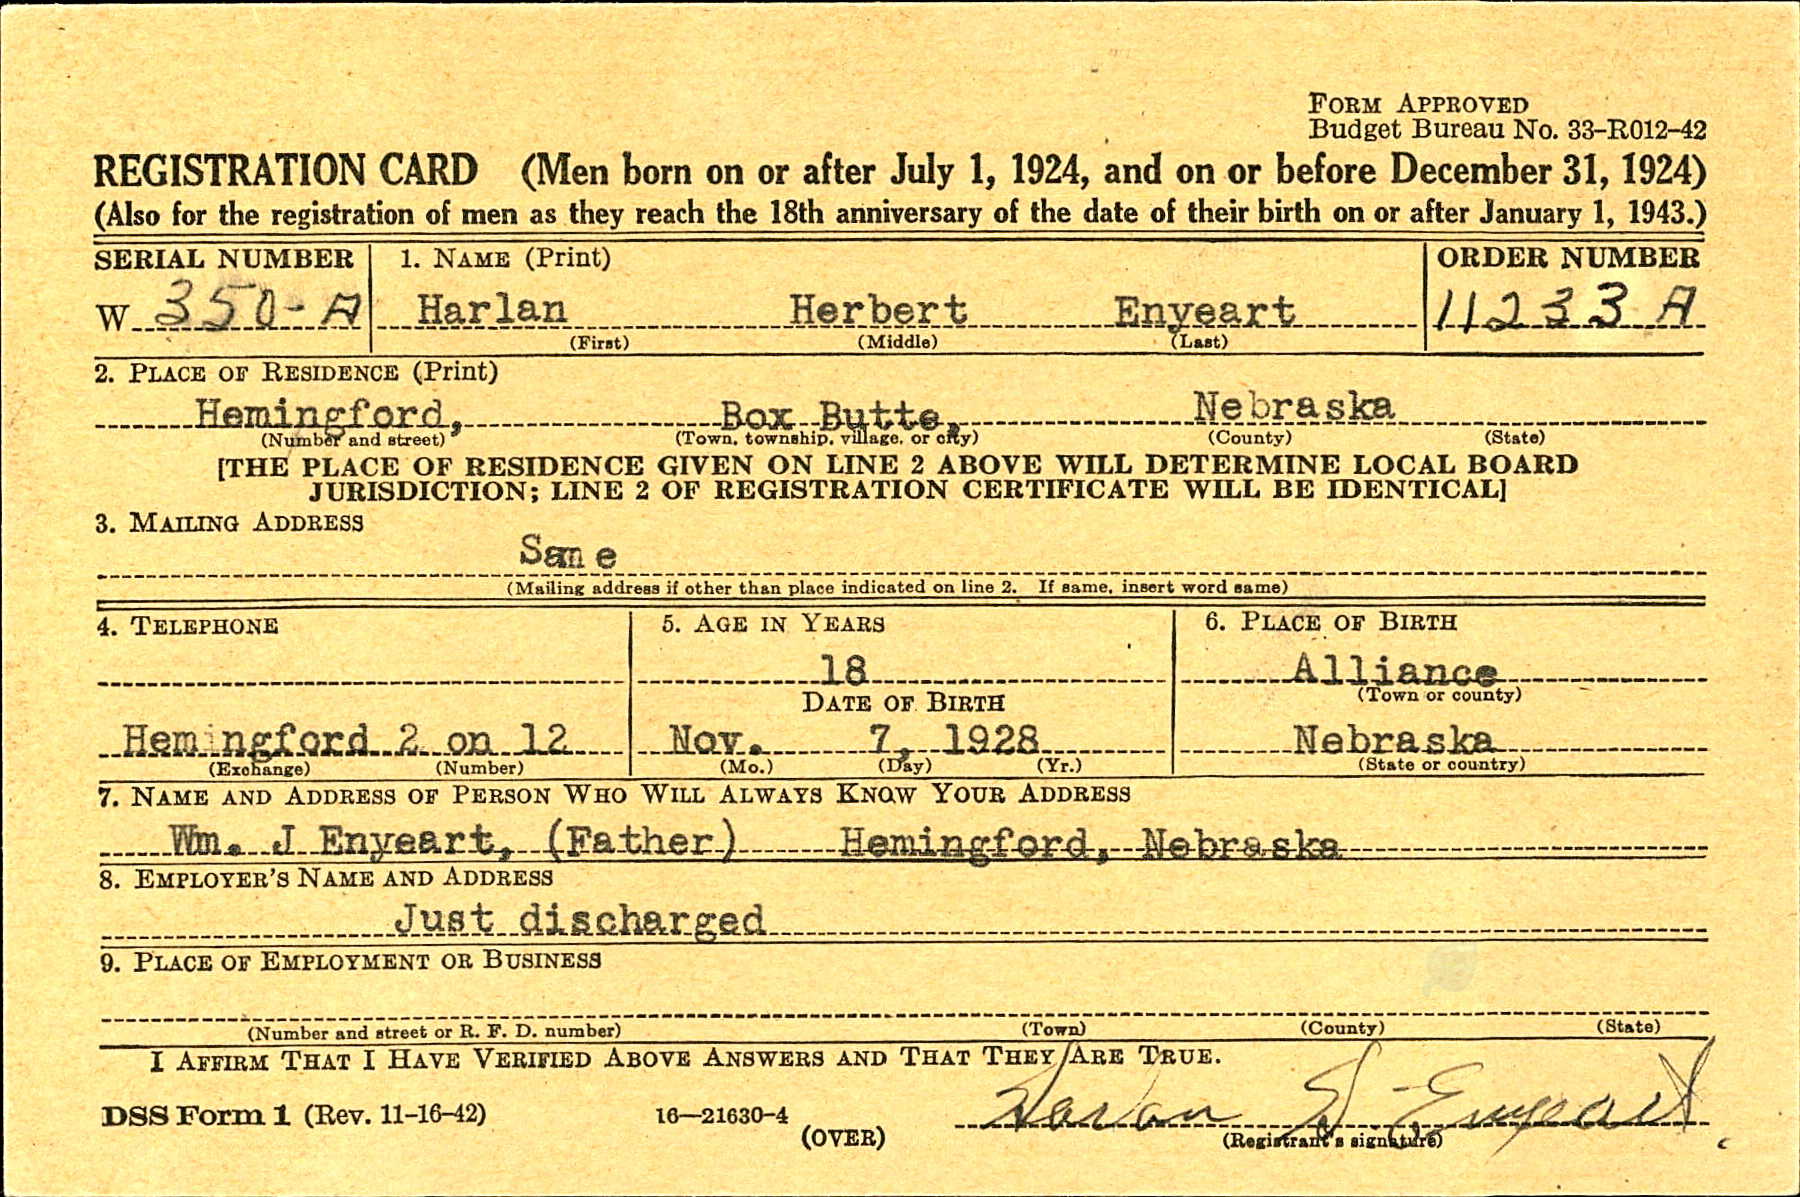 FORM APPROVED
Budget Bureau No. 33-R012-42
REGISTRATION CARD (Men born on or after July 1, 1924, and on or before December 31, 1924)
(Also for the registration of men as they reach the 18th anniversary of the date of their birth on or after January 1, 1943.)
SERIAL NUMBER 1. NAME (Print) ORDER NUMBER
W 350-A Harlan Herbert Enyeart 11233 A
(First) (Middle) (Last)
2. PLACE OF RESIDENCE (Print)
Hemingford, Box Butte, Nebraska
(Number and street) (Town, township, village, or city) (County) (State)
[THE PLACE OF RESIDENCE GIVEN ON LINE 2 ABOVE WILL DETERMINE LOCAL BOARD
JURISDICTION; LINE 2 OF REGISTRATION CERTIFICATE WILL BE IDENTICAL]
3. MAILING ADDRESS
Same
(Mailing address if other than place indicated on line 2. If same, insert word same)
4. TELEPHONE 5. AGE IN YEARS 6. PLACE OF BIRTH
18 Alliance
DATE OF BIRTH (Town or county)
Hemingford 2 on 12 Nov. 7, 1928 Nebraska
(Exchange) (Number) (Mo.) (Day) (Yr.) (State or country)
7. NAME AND ADDRESS OF PERSON WHO WILL ALWAYS KNOW YOUR ADDRESS
Wm. J Enyeart, (Father) Hemingford, Nebraska
8. EMPLOYER'S NAME AND ADDRESS
Just discharged
9. PLACE OF EMPLOYMENT OR BUSINESS
(Number and street or R. F. D. number) (Town) (County) (State)
I AFFIRM THAT I HAVE VERIFIED ABOVE ANSWERS AND THAT THEY ARE TRUE.
DSS Form 1 (Rev. 11-16-42) 16—21630-4 Harlan H Enyeart
(OVER) (Registrant's signature)